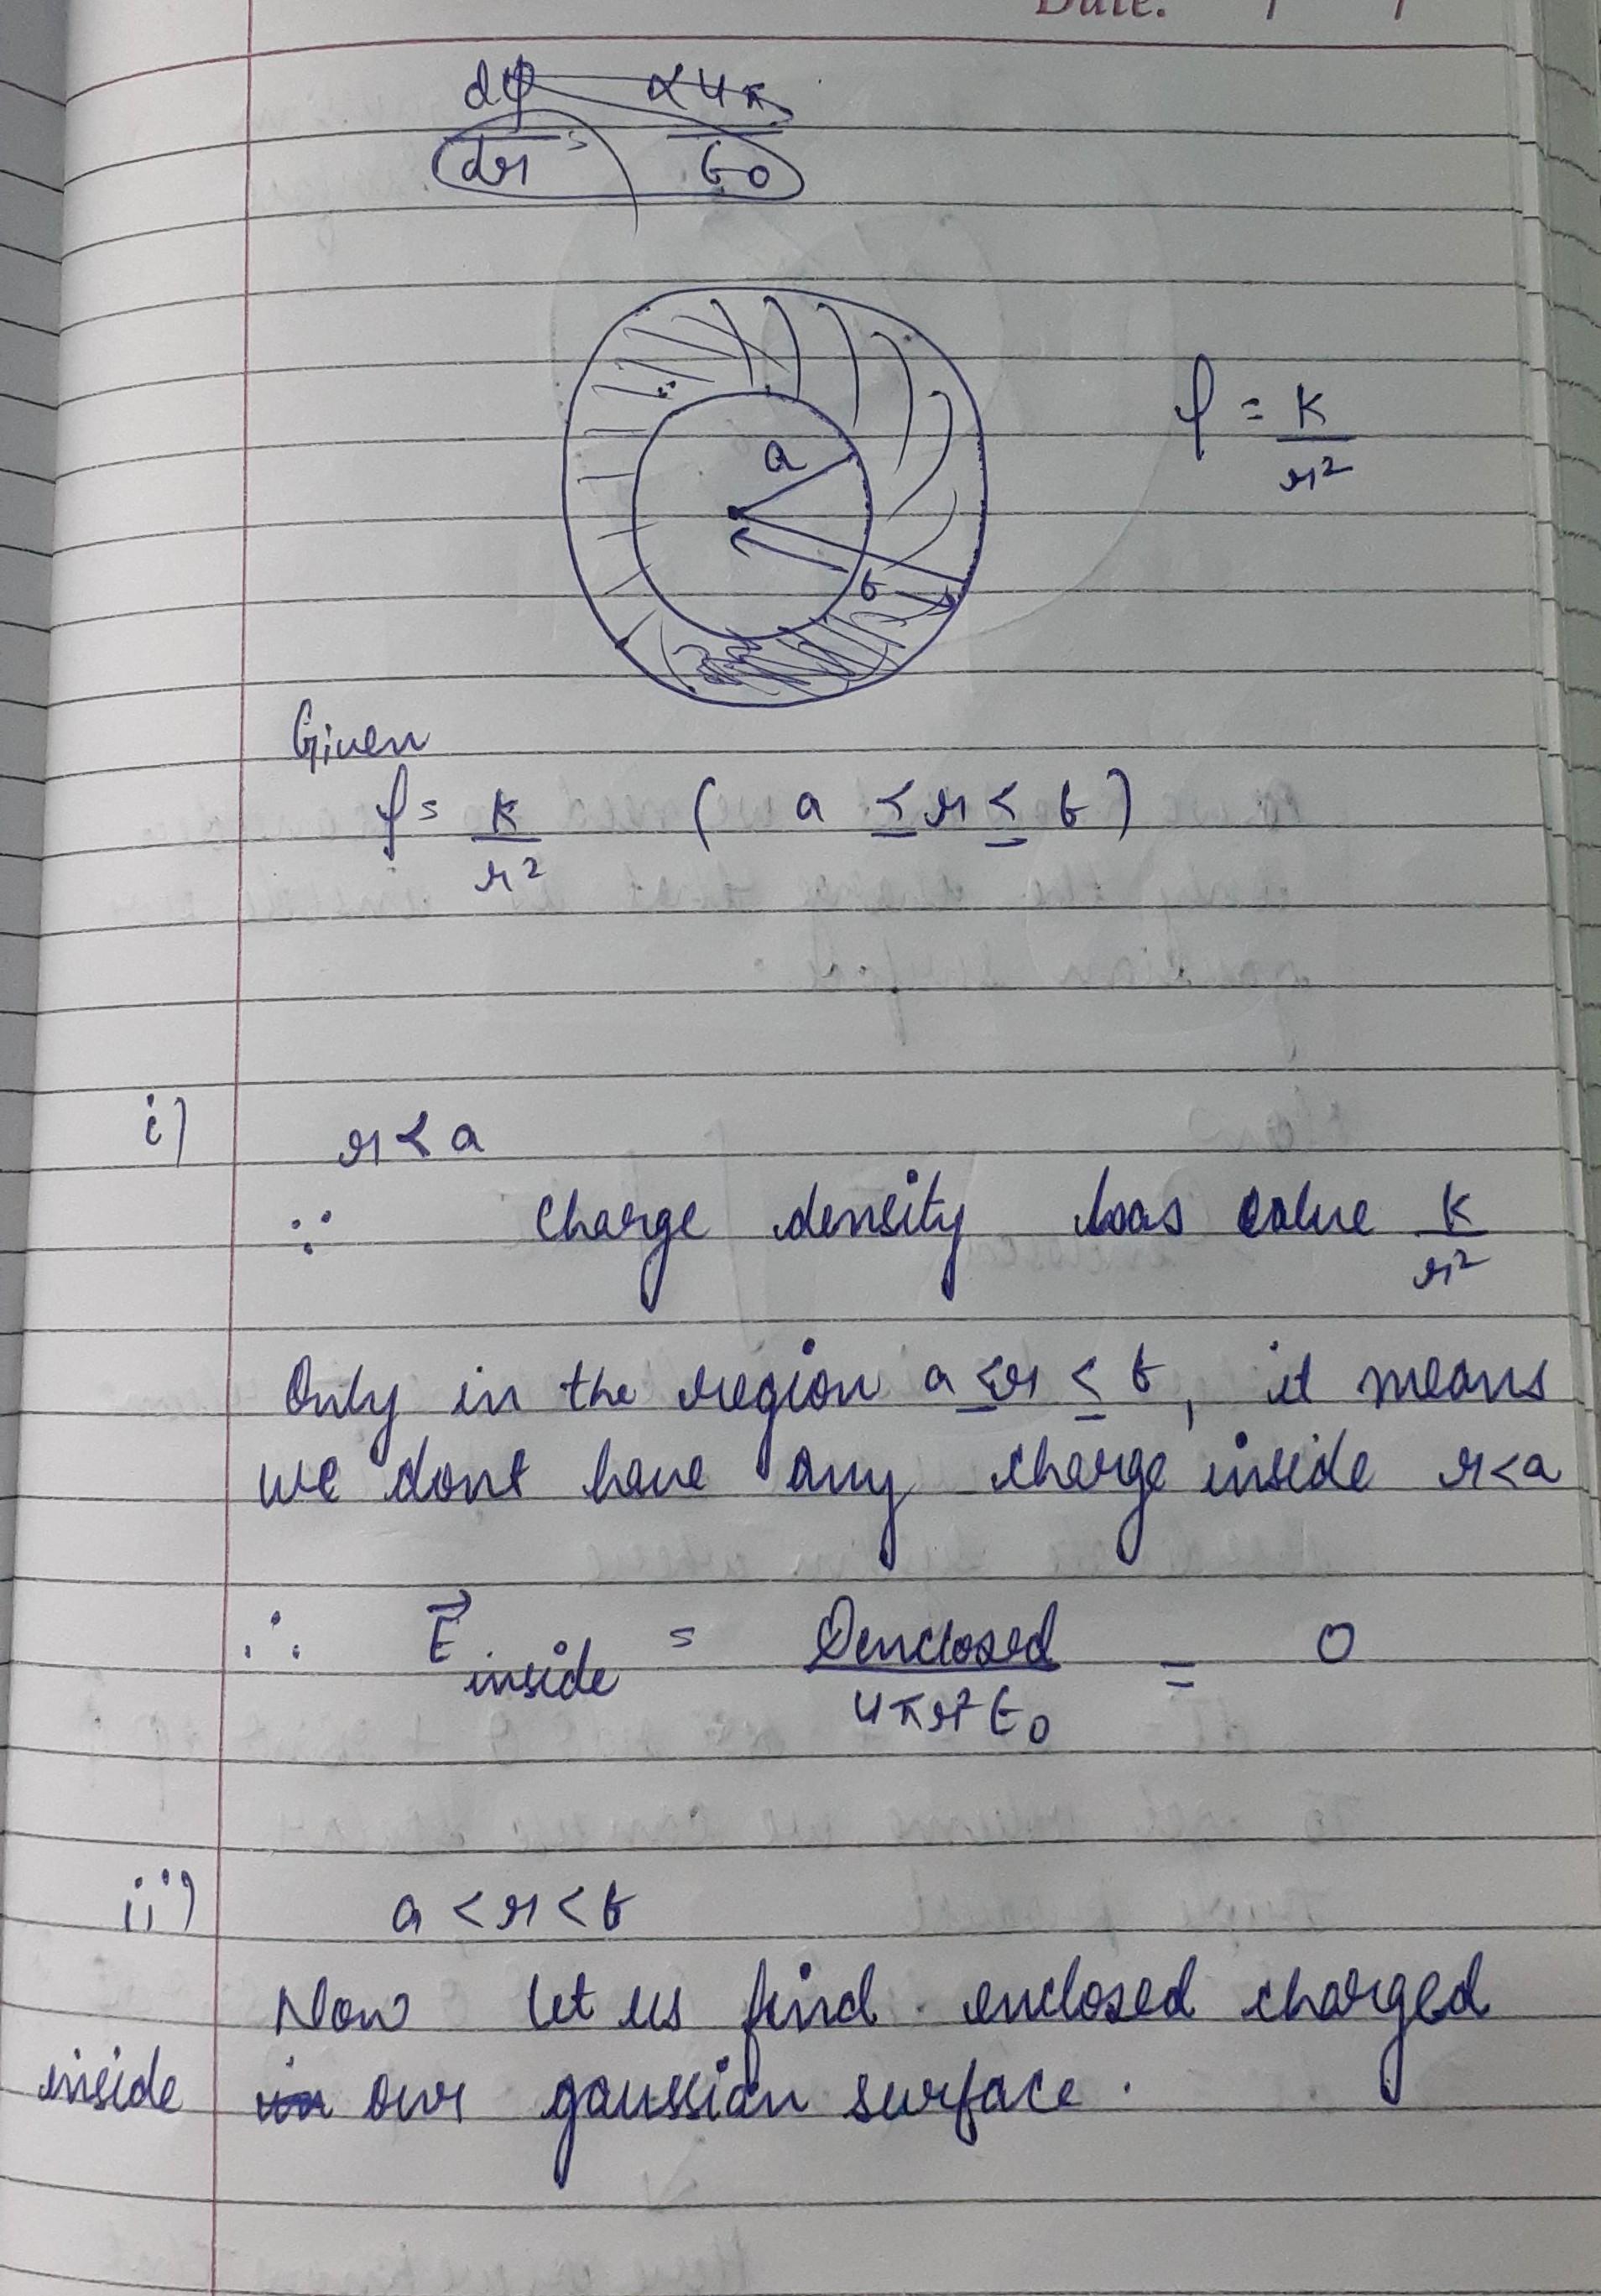 Date: / /
dφ/dr = α4π/ε0
a
b
ρ = k/r²
Given
ρ = k/r² ( a ≤ r ≤ b )
i) r < a
∵ charge density has value k/r²
Only in the region a ≤ r ≤ b, it means
we dont have any charge inside r<a
∴ E⃗ inside = Qenclosed/4πr²ε0 = 0
ii) a < r < b
Now let us find enclosed charged
inside our gaussian surface.